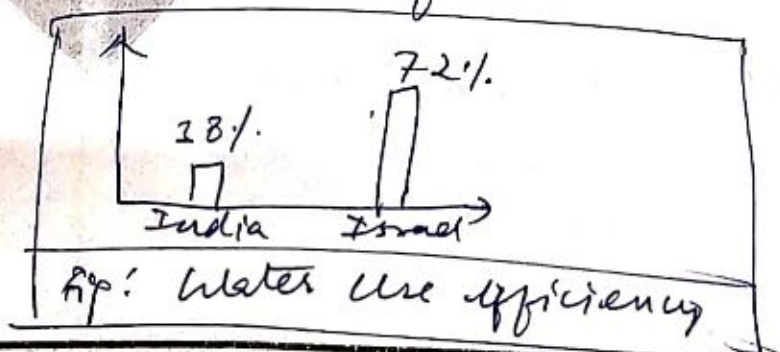 72%
18%
India Israel
Fig: Water Use efficiency